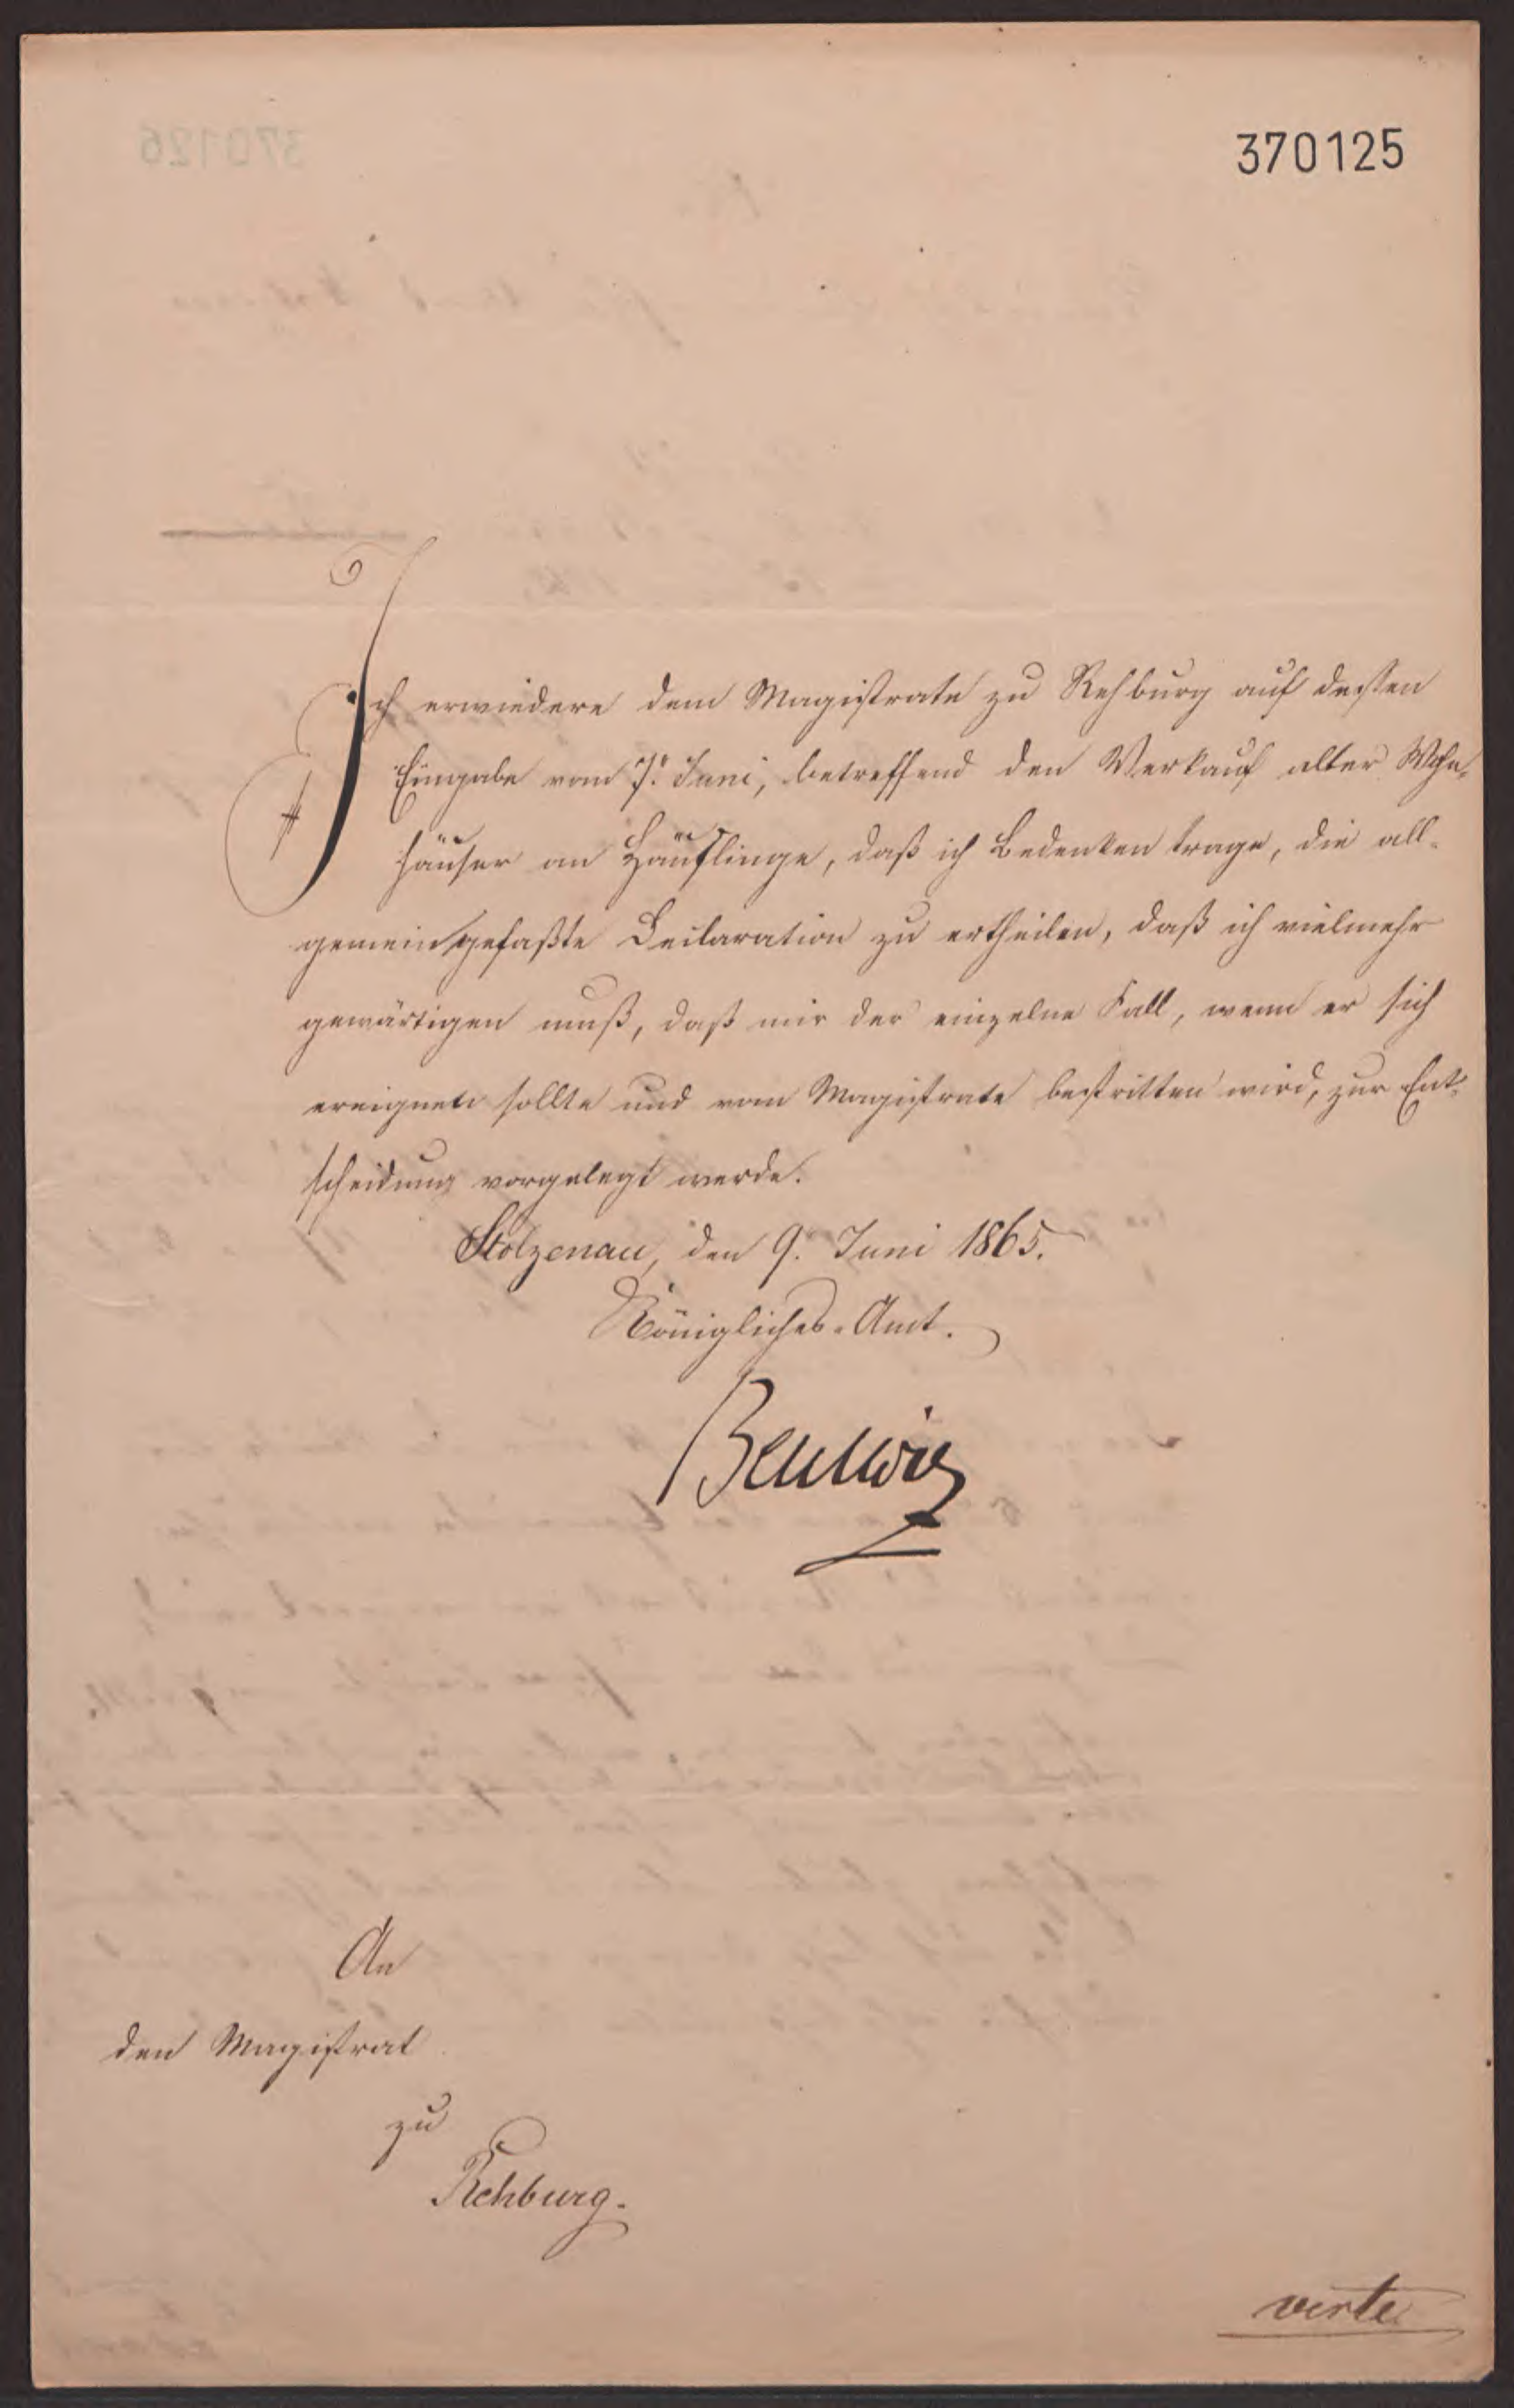 370125
Ich erwiedere dem Magistrate zu Rehburg auf dessen
Eingabe vom 7. Juni, betreffend den Verkauf alter Wohn-
häuser an Häuslinge, daß ich Bedenken trage, die all-
gemein gefaßte Declaration zu ertheilen, daß ich vielmehr
gewärtigen muß, daß mir der einzelne Fall, wenn er sich
ereignen sollte und vom Magistrate bestritten wird, zur Ent-
scheidung vorgelegt werde.
Stolzenau, den 9. Juni 1865.
Königliches Amt.
Beulwitz
An
den Magistrat
zu
Rehburg.
verte